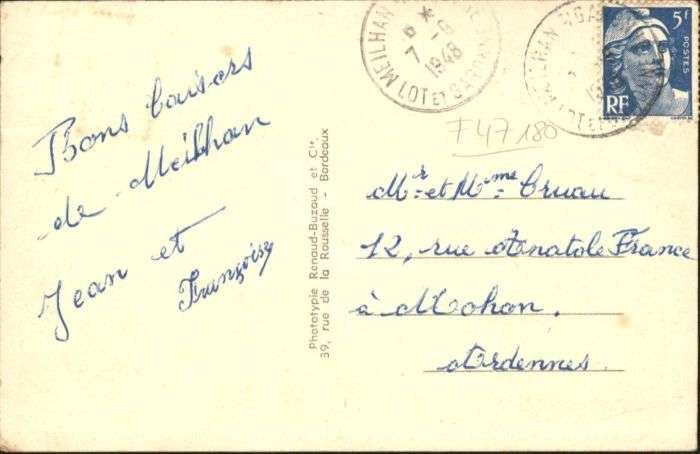 Bons baisers
de Meilhan
Jean et
Françoise
Phototypie Renaud-Buzaud et Cie.
39, rue de la Rousselle - Bordeaux
MEILHAN GARONNE
* 6
7 -9
1948
LOT ET GARONNE
5F
POSTES
RF
F47180
Mr et Mme Cruau
12, rue Anatole France
à Mohon.
Ardennes